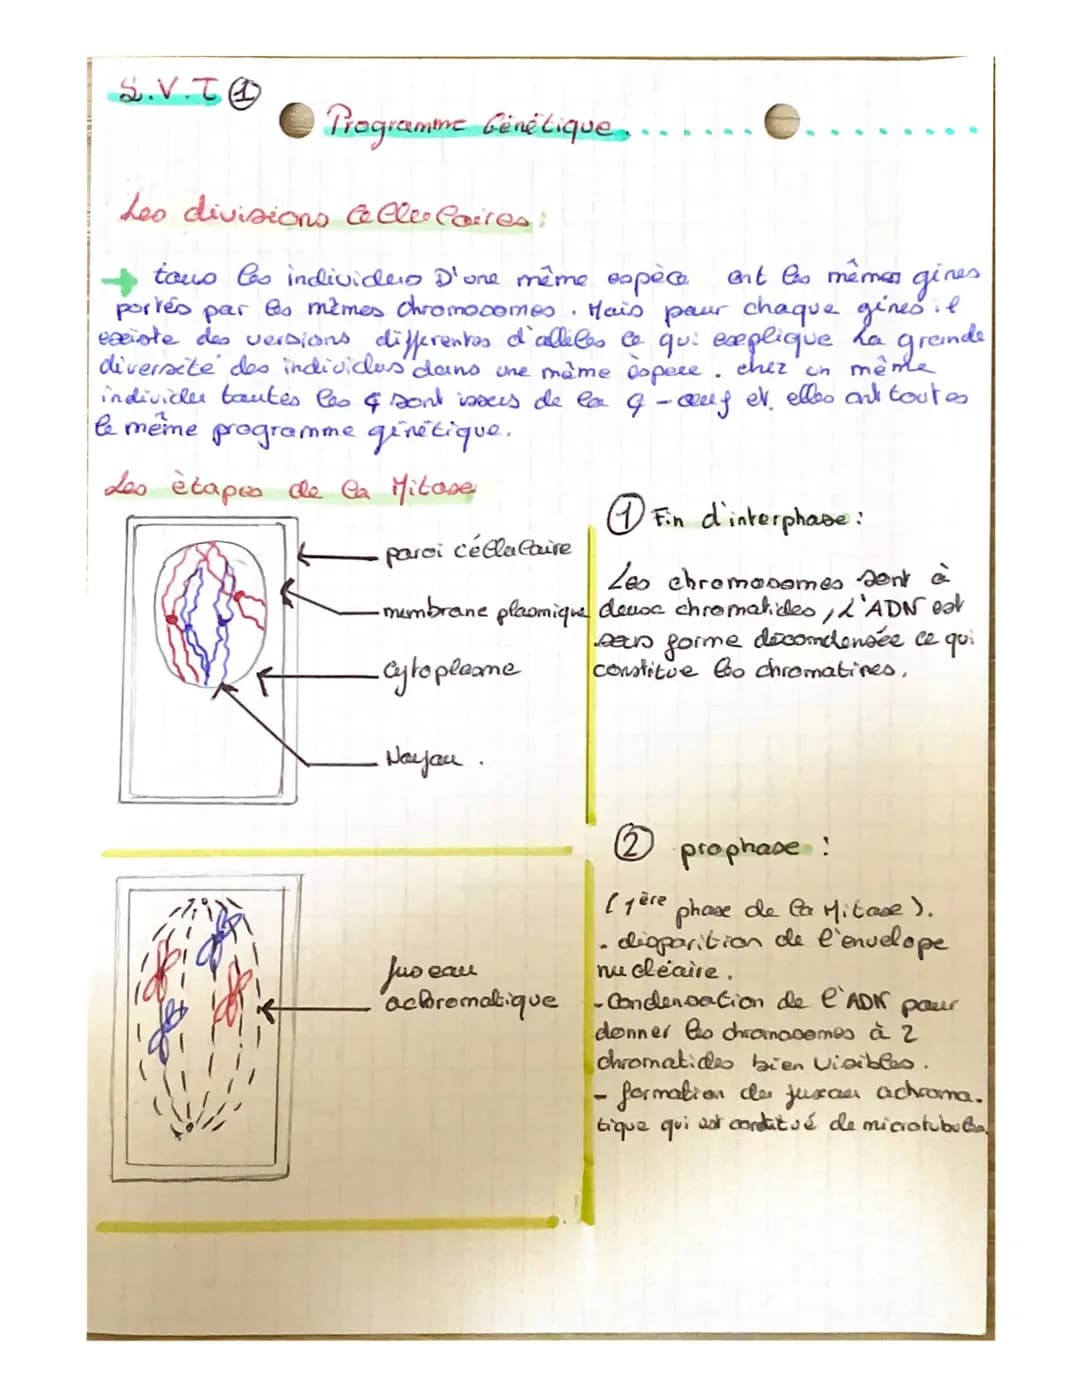 S.V.T ①
Programme Génétique.
Les divisions Cellulaires:
→ tous les individus D'une même espèce ont les mêmes gènes
portés par les mêmes chromosomes. Mais pour chaque gènes il
existe des versions differentes d'allèles ce qui explique La grande
diversité des individus dans une même espece. chez un même
individu toutes les ¢ sont issues de la ¢-œuf et elles ont toutes
le même programme génétique.
Les ètapes de la Mitose
① Fin d'interphase:
paroi céllulaire
membrane plasmique
Cytoplasme
Noyau.
Les chromosomes sont à
deux chromatides, L'ADN est
sous forme décomdensée ce qui
constitue les chromatines.
② prophase:
fuseau
achromatique
(1ère phase de la Mitose).
- disparition de l'envelope
nucléaire.
- Condensation de l'ADN pour
donner les chromosomes à 2
chromatides bien visibles.
- formation du fuseau achroma-
tique qui est constitué de microtubules.